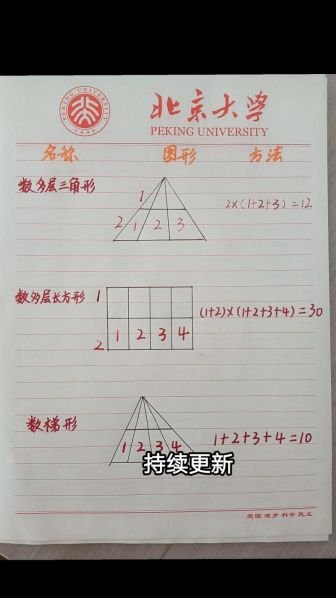 PEKING UNIVERSITY
1898
北京大学
PEKING UNIVERSITY
名称 图形 方法
数多层三角形
1
2 1 2 3
2×(1+2+3)=12
数多层长方形
1
2 1 2 3 4
(1+2)×(1+2+3+4)=30
数梯形
1 2 3 4
1+2+3+4=10
持续更新
爱国 进步 科学 民主